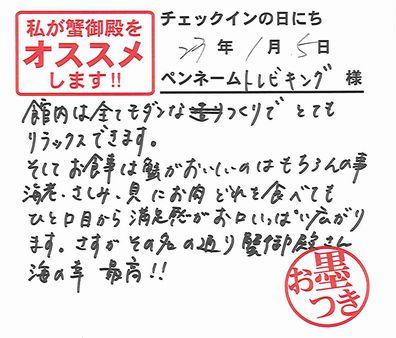 私が蟹御殿を
オススメ
します!!
チェックインの日にち
27年1月5日
ペンネームトレビキング 様
館内は全てモダンなつくりで とても
リラックスできます。
そしてお食事は蟹がおいしいのはもちろんの事
海老、さしみ、貝にお肉 どれを食べても
ひと口目から満足感がお口いっぱい広がり
ます。さすが その名の通り 蟹御殿さん
海の幸 最高!!
お墨つき